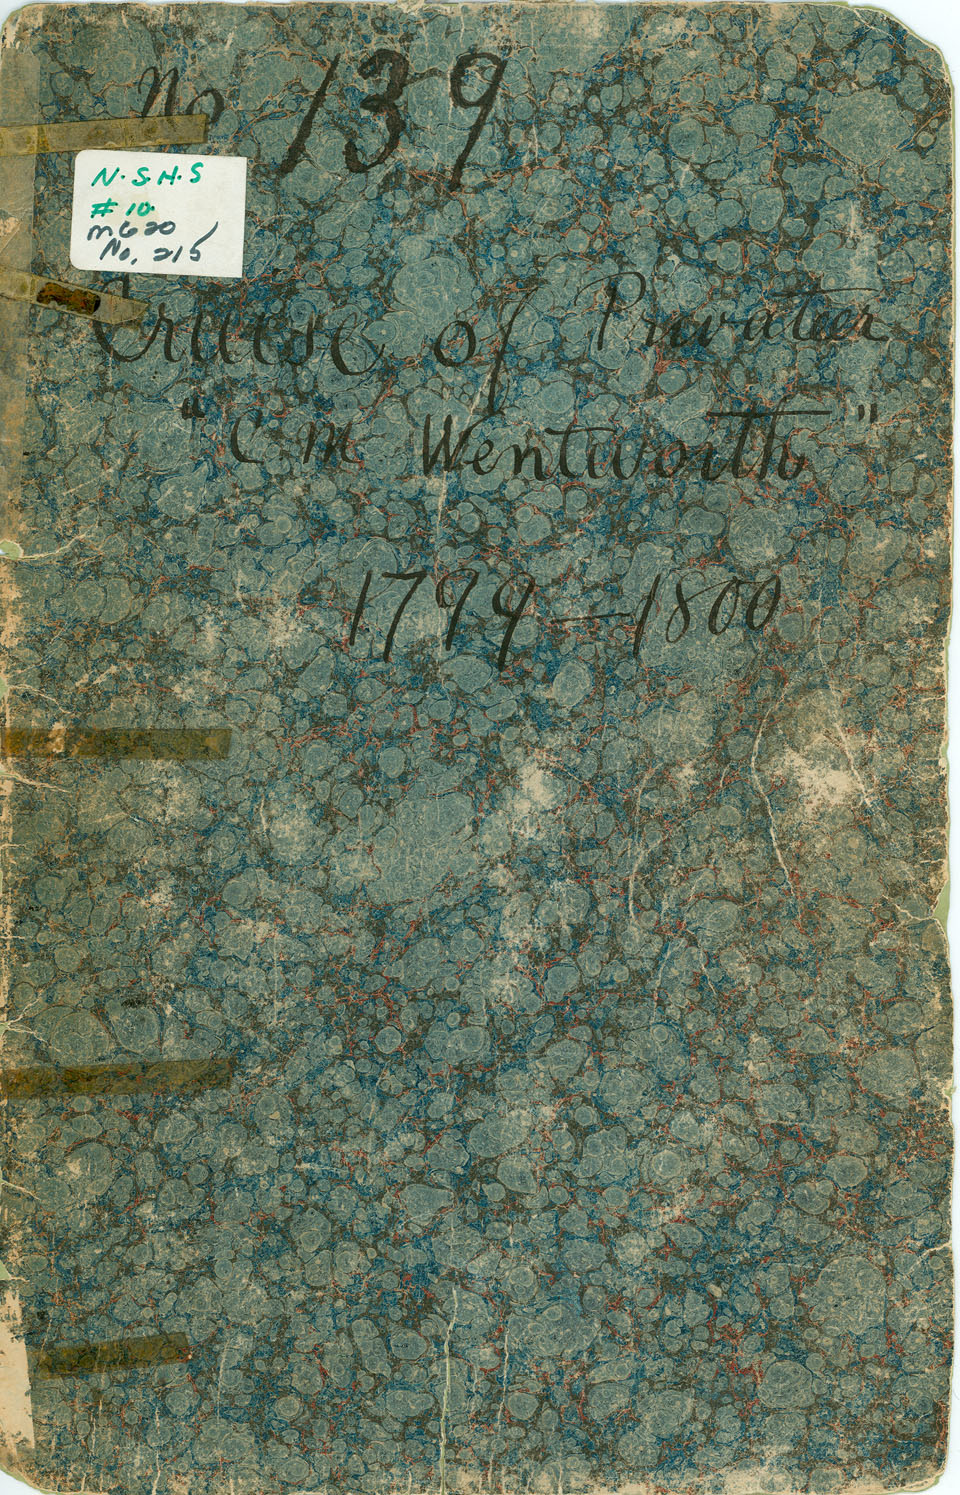 No 139
N.S.H.S
# 10
MG 20
No. 215
Cruise of Privateer
"C. M Wentworth"
1799–1800